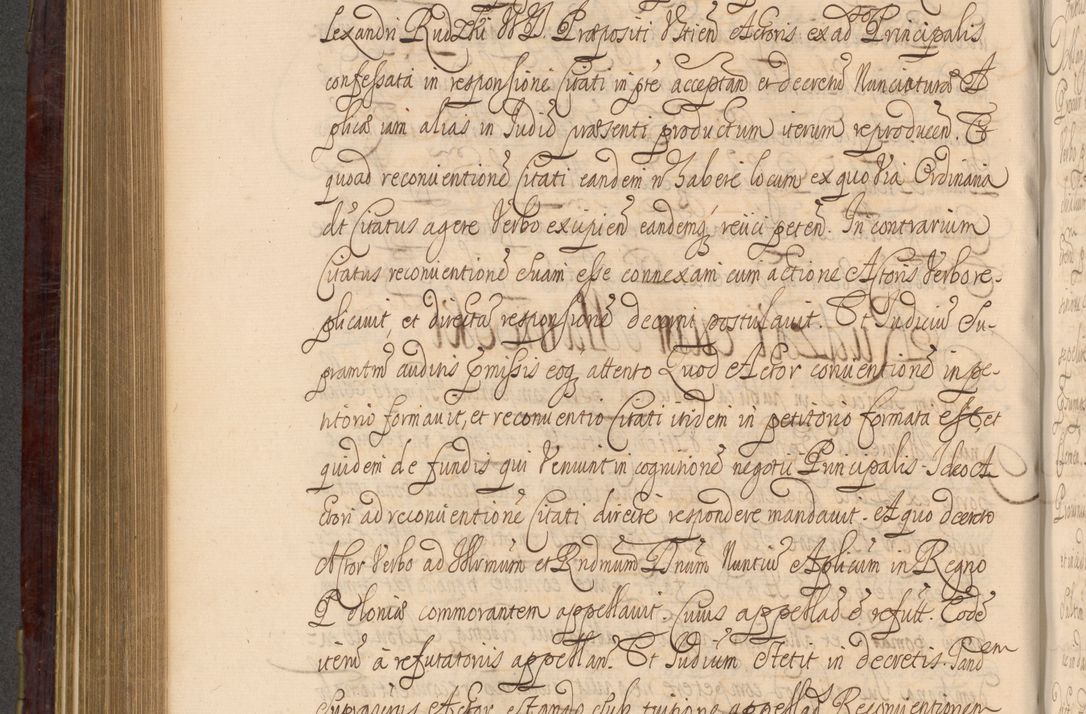 lexandri Rudzki V D Præpositi Vstien Actoris ex ad Principalis
confessata in responsione Citati in pte acceptan et decretu Nunciaturæ A
plicæ iam alias in Judio præsenti productum iterum reproducen. Et
quoad reconuentione Citati eandem n habere locum ex quo Via Ordinaria
dt Citatus agere Verbo excipien eandemq reiici peten. In contrarium
Citatus reconuentione suam esse connexam cum actione Actoris Verbo re-
plicauit, et directa responsione decerni postulauit. Et Judiciu Su-
prantm auditis pmissis eoq attento Quod Actor conuentione in pe-
titorio formauit, et reconuentio Citati itidem in petitorio formata est, et
quidem de fundis qui Veniunt in cognitione negotii Principalis. Ideo A
ctori ad reconuentione Citati directe respondere mandauit. A quo decreto
Actor Verbo ad Illrmum et Rndmum Dnum Nuntiu Aplicum in Regno
Poloniæ commorantem appellauit. Cuius appellao e refut. Eode
iteru à refutatoriis appellan. Et Judium stetit in decretis. Tandem
Suprascris Actor stando sub tuitione appellao Reconuentionem